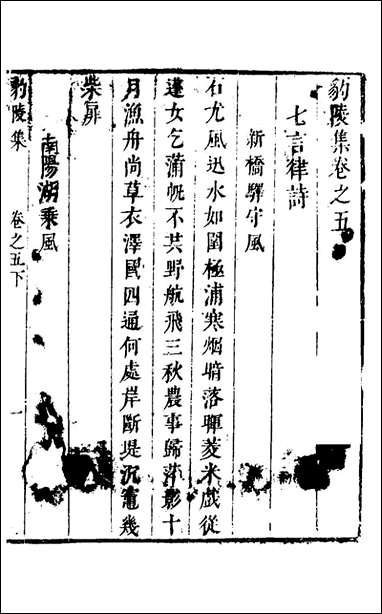 豹陵集卷之五
七言律詩
新橋驛守風
石尤風迅水如圍極浦寒烟暗落暉菱米戲從
蓮女乞蒲帆不共野航飛三秋農事歸萍影十
月漁舟尚草衣澤國四通何處岸斷堤沉竈幾
柴扉
南陽湖乘風
豹陵集 卷之五下 一